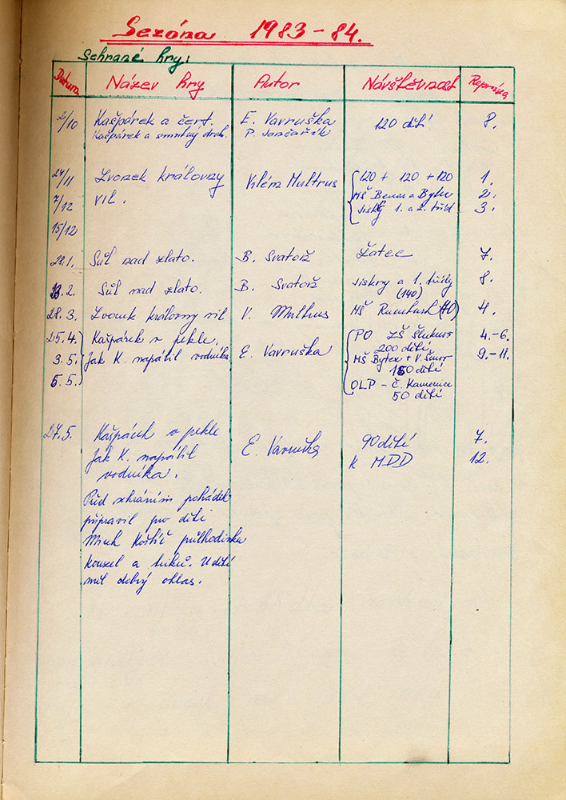 Sezóna 1983-84.
Sehrané hry:
Datum Název hry Autor Návštěvnost Repríza
2/10 Kašpárek a čert. E. Vavruška 120 dětí 8.
Kašpárek a smutný drak. P.
24/11 Zvonek královny Vilém Multrus 120 + 120 + 120 1.
7/12 vil. MŠ Benar a Bytex 2.
15/12 jiskry 1. a 2. tříd 3.
22.1. Sůl nad zlato. B. Svatoš Žatec 7.
13.2. Sůl nad zlato. B. Svatoš jiskry a 1. třídy 8.
(140)
28.3. Zvonek královny vil V. Multrus MŠ Rumburk 4.
25.4. Kašpárek v pekle. PO ZŠ Šluknov 4.-6.
200 dětí
3.5. Jak K. napálil vodníka E. Vavruška MŠ Bytex + V. Šenov 9.-11.
150 dětí
5.5. OLP - Č. Kamenice
50 dětí
27.5. Kašpárek v pekle E. Vavruška 90 dětí 7.
Jak K. napálil k MDD 12.
vodníka.
Před sehráním pohádek
připravil pro děti
Mirek půlhodinku
kouzel a triků. U dětí
měl dobrý ohlas.